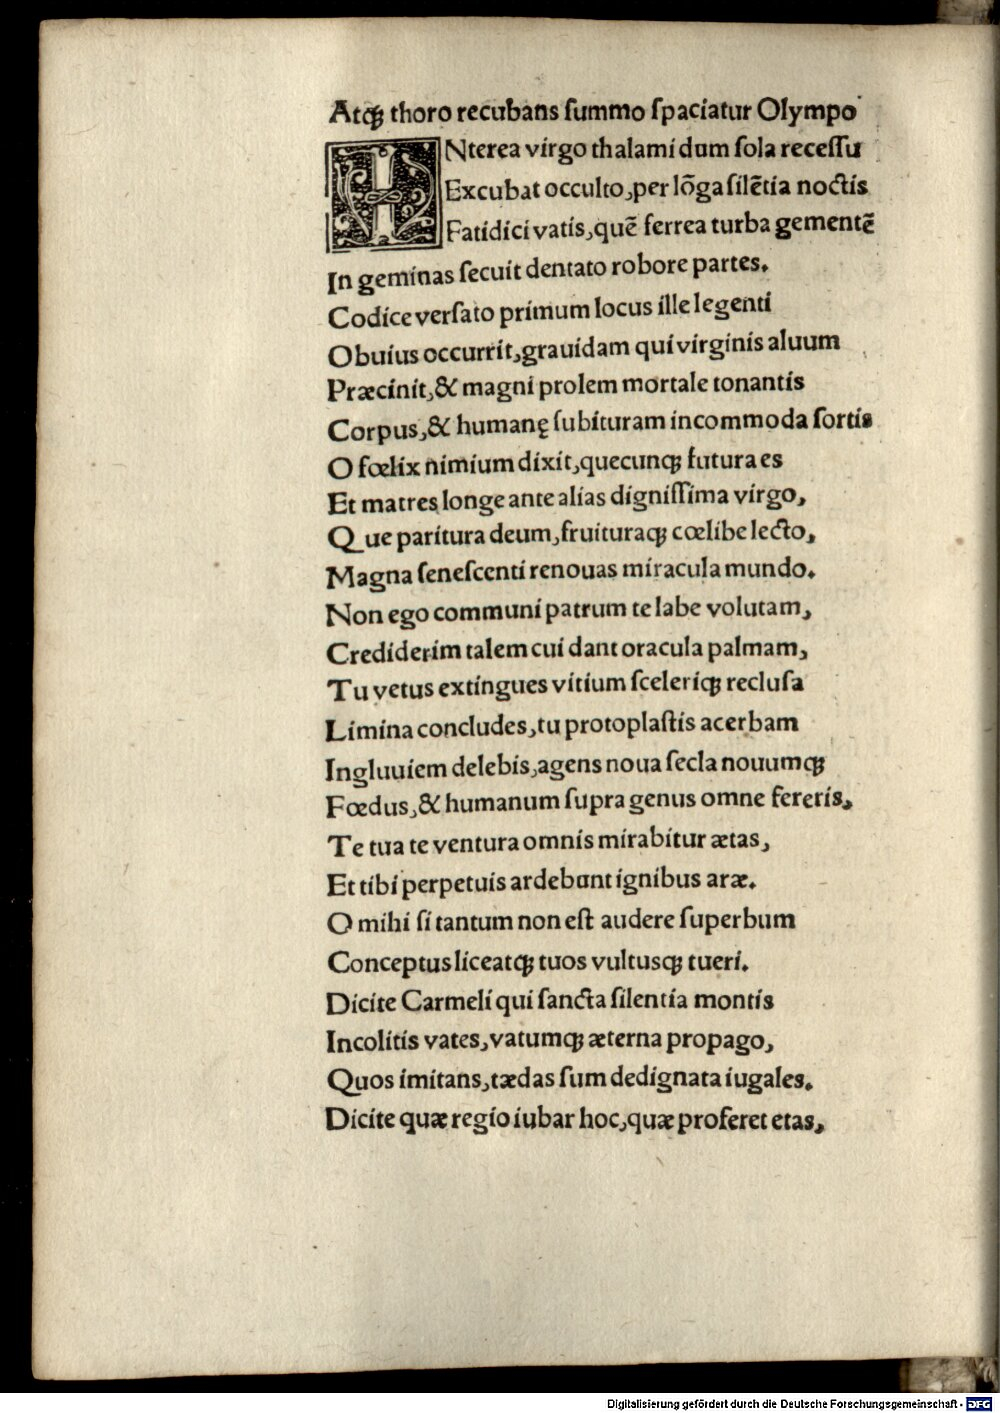 Atqꝫ thoro recubans ſummo ſpaciatur Olympo
INterea virgo thalami dum ſola receſſu
Excubat occulto, per lōga ſilētia noctis
Fatidici vatis, quē ferrea turba gementē
In geminas ſecuit dentato robore partes.
Codice verſato primum locus ille legenti
Obuius occurrit, grauidam qui virginis aluum
Præcinit, & magni prolem mortale tonantis
Corpus, & humanę ſubituram incommoda ſortis
O fœlix nimium dixit, quecunqꝫ futura es
Et matres longe ante alias digniſſima virgo,
Que paritura deum, fruituraqꝫ cœlibe lecto,
Magna ſeneſcenti renouas miracula mundo.
Non ego communi patrum te labe volutam,
Crediderim talem cui dant oracula palmam,
Tu vetus extingues vitium ſceleriqꝫ recluſa
Limina concludes, tu protoplaſtis acerbam
Ingluuiem delebis, agens noua ſecla nouumqꝫ
Fœdus, & humanum ſupra genus omne fereris,
Te tua te ventura omnis mirabitur ætas,
Et tibi perpetuis ardebunt ignibus aræ.
O mihi ſi tantum non eſt audere ſuperbum
Conceptus liceatqꝫ tuos vultusqꝫ tueri.
Dicite Carmeli qui ſancta ſilentia montis
Incolitis vates, vatumqꝫ æterna propago,
Quos imitans, tædas ſum dedignata iugales.
Dicite quæ regio iubar hoc, quæ proferet etas,
Digitalisierung gefördert durch die Deutsche Forschungsgemeinschaft - DFG